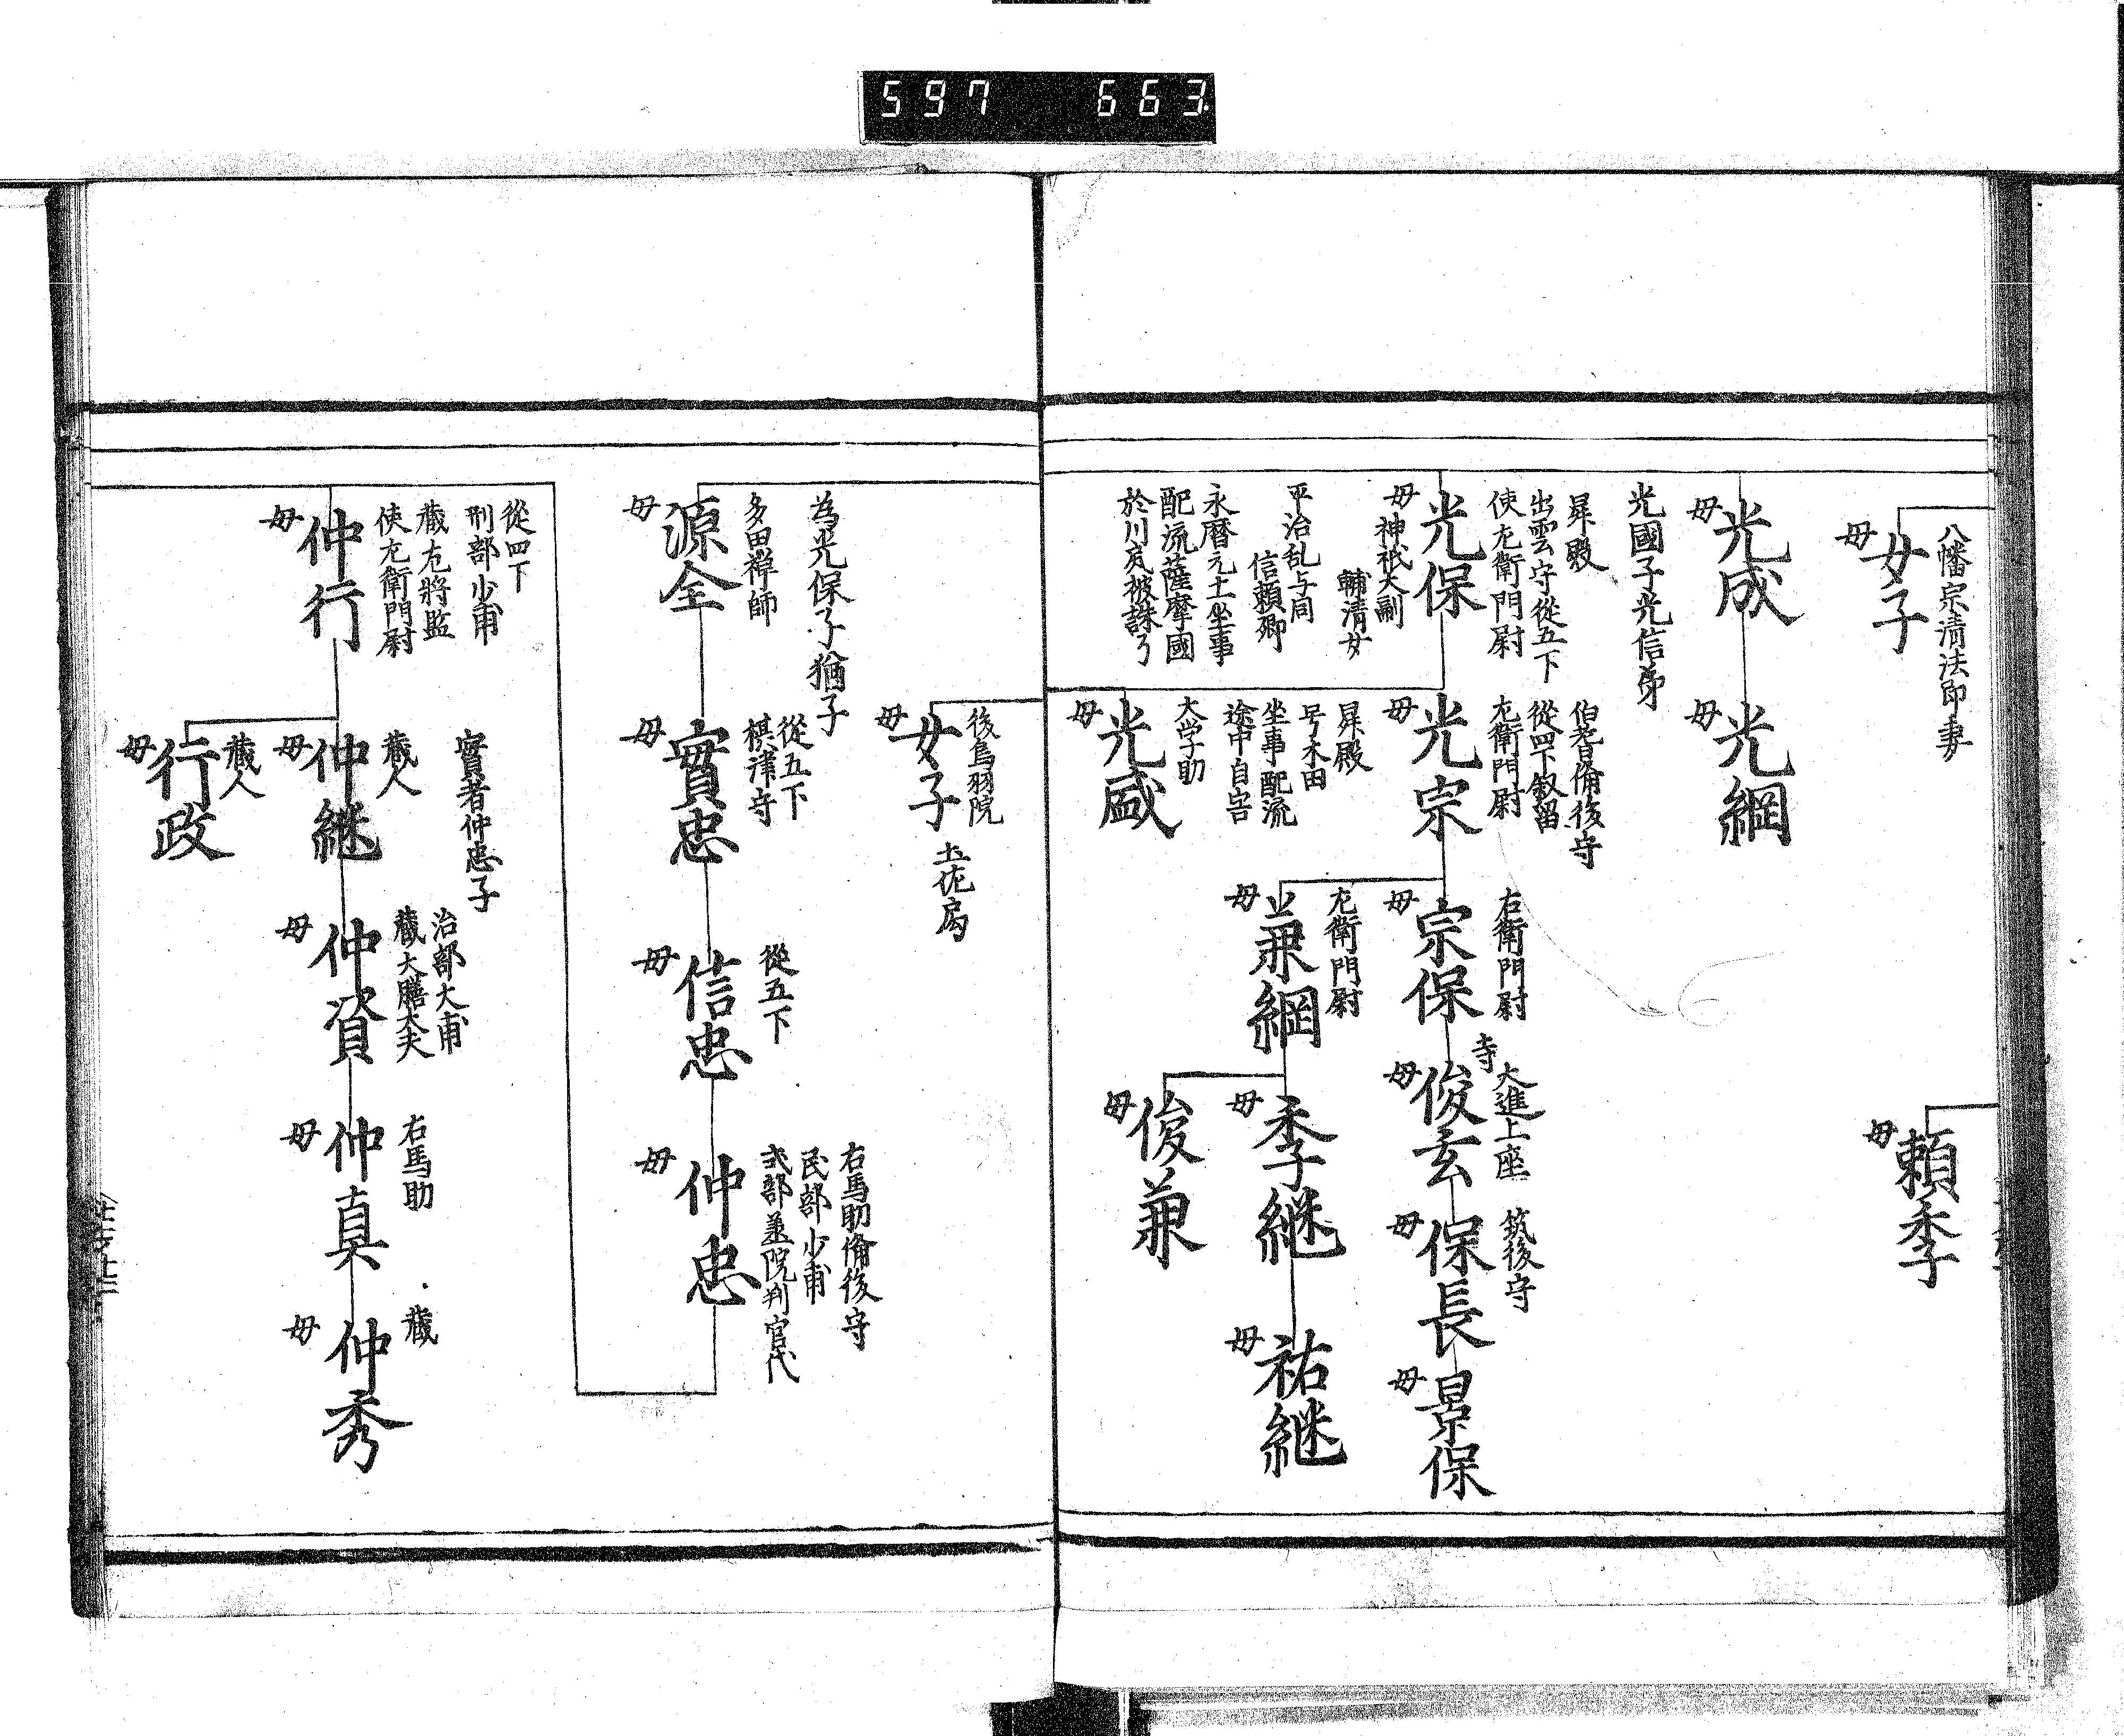 597 663
八幡宗清法印妻
女子
母
頼季
母
光成
母
光綱
母
光國子光信弟
昇殿
出雲守従五下
使左衛門尉
光保
母神祇大副
輔清女
平治乱与同
信頼卿
永暦元十一坐事
配流薩摩國
於川尻被誅了
伯耆備後守
従四下叙留
左衛門尉
光宗
母
昇殿
号木田
坐事配流
途中自害
右衛門尉
宗保
母
寺
大進上座
俊玄
母
筑後守
保長
母
景保
母
左衛門尉
兼綱
母
季継
母
祐継
母
俊兼
母
大学助
光盛
母
後鳥羽院
女子
土佐局
母
為光保子猶子
多田禅師
源全
母
従五下
摂津守
實忠
母
従五下
信忠
母
右馬助備後守
民部少甫
式部兼院判官代
仲忠
母
従四下
刑部少甫
蔵左将監
使左衛門尉
仲行
母
實者仲忠子
蔵人
仲継
母
治部大甫
蔵大膳大夫
仲資
母
右馬助
仲真
母
蔵
仲秀
母
蔵人
行政
母